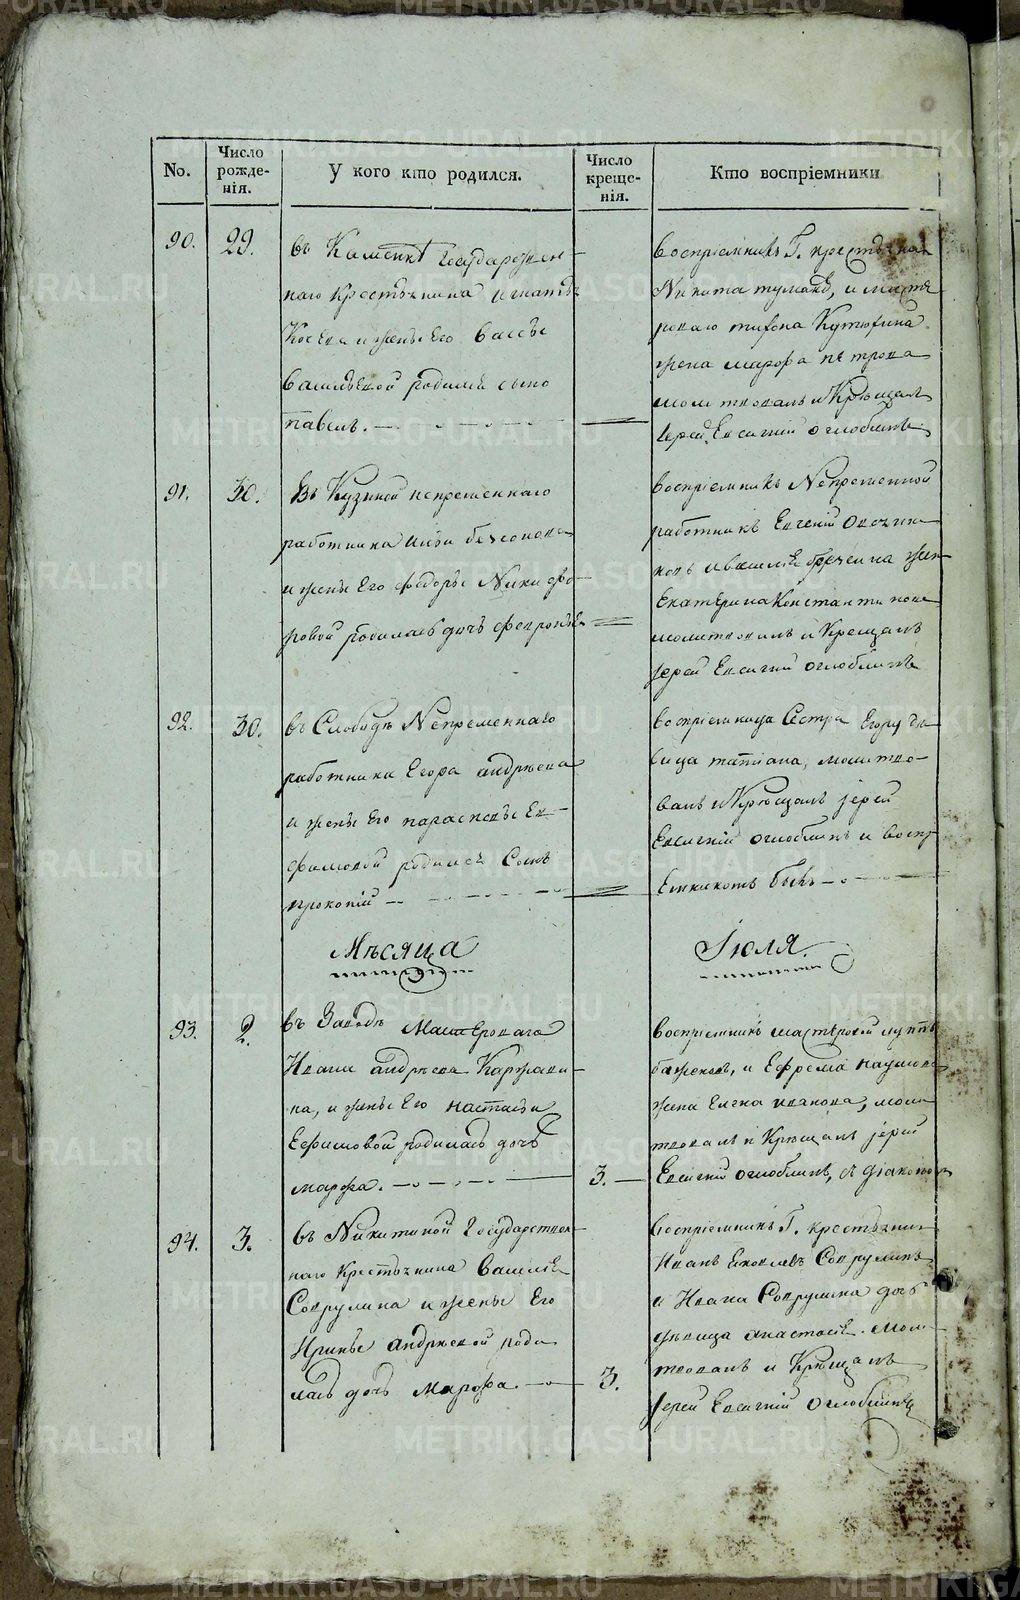 No.
Число рожде-нія.
У кого кто родился.
Число креще-нія.
Кто воспріемники
90.
29.
въ Государствен-
наго Крестьянина Игнатья
и жены Его Вассы
Васильевой родился сынъ
павелъ.
воспріемникъ Г. крестьянинъ
Никита и масте
роваго
жена марфа петрова
молитвовалъ и Крѣщалъ
Іерей Евсигній оглоблинъ
91.
30.
Въ Кузиной непременнаго
работника
и жены Его федоры Никифо-
ровой родилась дочь февронья
воспріемникъ Непременной
работникъ Евгеній Овсянни
ковъ и василья жена
Екатерина Константинова
молитвовалъ и Крещалъ
Іерей Евсигній оглоблинъ
92.
30.
въ Слободѣ Непременнаго
работника Егора андрѣева
и жены Его парасковьи Ев-
фимовой родился Сынъ
прокопій
воспріемница Сестра Егору дѣ
вица татіана, молитво-
валъ и Крѣщалъ іерей
Евсигній оглоблинъ и воспр
Емникомъ былъ
Мѣсяца
Іюля.
93.
2.
въ Заводѣ Мастероваго
Ивана андрѣева Каржави-
на, и жены Его настасьи
Ефимовой родилась дочь
марфа.
3.
воспріемникъ мастеровой
баженовъ, и Ефрема наумова
жена Елена иванова, моли
твовалъ и Крѣщалъ іерей
Евсигній оглоблинъ, съ діакономъ
94.
3.
въ Никитиной Государствен-
наго Крестьянина Василья
Соврулина и жены Его
Ирины андрѣевой роди
лась дочь Марфа.
3.
воспріемникъ Г. крестьянинъ
Иванъ Яковлевъ Соврулинъ
и Ивана Соврулина дочь
дѣвица анастасія. моли
твовалъ и Крѣщалъ
Іерей Евсигній Оглоблинъ
METRIKI.GASO-URAL.RU